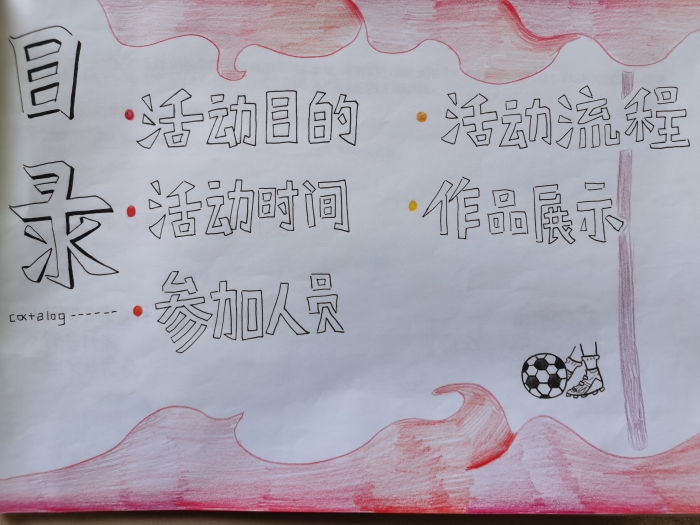 目录
catalog
活动目的
活动时间
参加人员
活动流程
作品展示